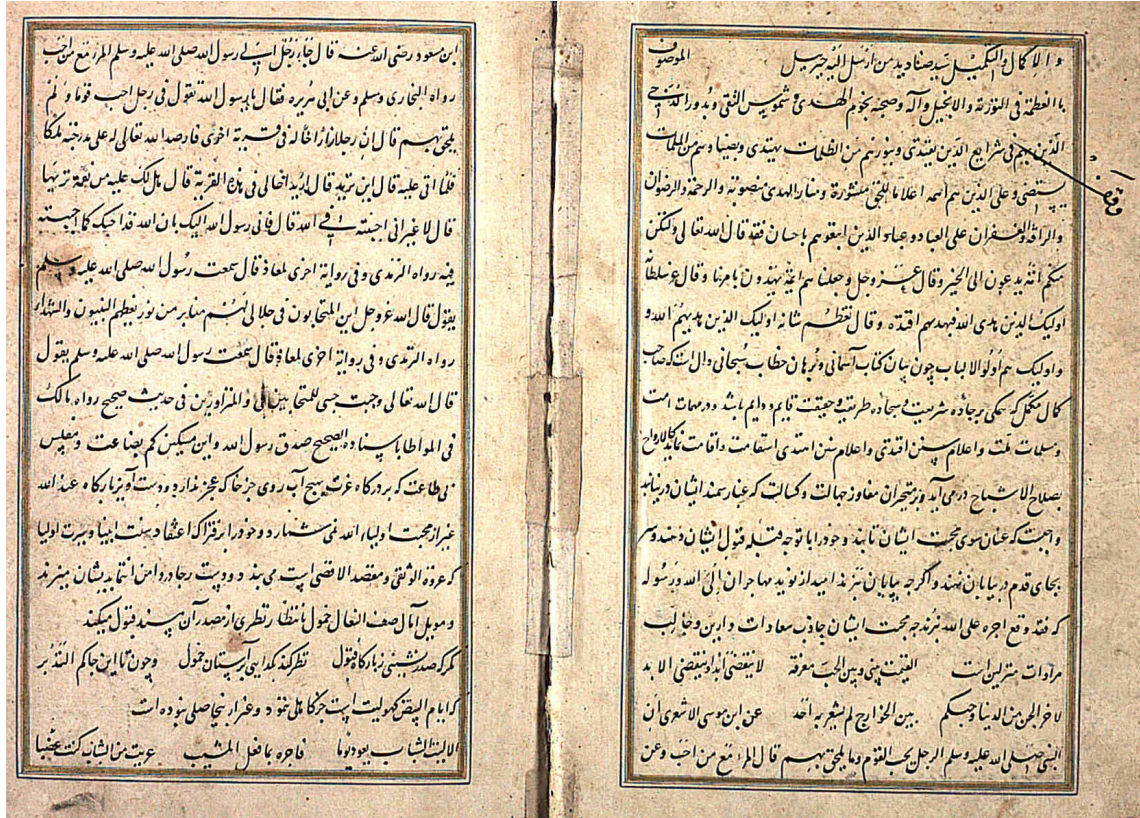 و الاکمال والتکمیل سید صنادید من ارسل الیه جبریل الموصوف
باالعظمة فی التوریة والانجیل وآله وصحبه نجوم الهدی و شموس التقی وبدور الدجی
الذین بهم فی شرایع الدین یقتدی وبنورهم من الظلمات یهتدی وبضیاوهم من الملمات
یستضی وعلی الذین هم ائمه اعلاما للتقی منشورة ومنار الهدی منصوبة والرحمة والرضوان
والرافة والغفران علی العباد و عباد الذین اتبعوهم باحسان فقد قال الله تعالی ولتکن
منکم امة یدعون الی الخیر وقال عز وجل وجعلنا هم ایمة یهدون بامرنا وقال عز سلطانه
اولیک الذین هدی الله فبهدیهم اقتده وقال تعظم شانه اولیک الذین هدیهم الله و
و اولیک هم اولوا الالباب چون بیان کتاب آسمانی وبرهان خطاب سبحانی دال است که صاحب
کمال مکمل که متمکن بر جاده شریعت و سجاده طریقت و حقیقت قایم و دایم باشد و در مهمات امت
ومسلمات ملت و اعلام سنن اقتدی و اعلام سنن اهتدی استقامت و اقامت نماید کالارواح
بصلاح الاشباح درمی آید و بر متحیران مفاوز جهالت و کسالت که غبار سمند ایشان در نیابند
واجبست که عنان سوی محبت ایشان تابند و خود را با توجه قبله قبول ایشان دهند و سر
بجای قدم در بیابان نهند و اگرچه بپایان نبرند امید از نوید مهاجرا الی الله ورسوله
که فقد وقع اجره علی الله نبرند چه محبت ایشان جاذب سعادات دارین و جالب
مرادات منزلین است الفیت بینی وبین الحب معرفة لا ینقضی ابدا و ینقضی الابد
لاخرجن من الدنیا وحبکم بین الجوارح لم یشعر به احد عن ابن موسی الاشعری ان
النبی صلی الله علیه وسلم الرجل یحب القوم وما یلحق بهم قال المرء مع من احب وعن
ابن مسعود رضی الله عنه قال جاء رجل الی رسول الله صلی الله علیه وسلم المرء مع من احب
رواه البخاری ومسلم وعن ابی هریره فقال یا رسول الله تقول فی رجل احب قوما و لم
یلحق بهم قال ان رجلا زار اخا له فی قریة اخری فارصد الله تعالی له علی مدرجته ملکا
فلما اتی علیه قال این ترید قال ارید اخا لی فی هذه القریة قال هل لک علیه من نعمة تربها
قال لا غیر انی احببته فی الله قال فانی رسول الله الیک بان الله قد احبک کما احببته
فیه رواه الترمدی وفی روایة اخری لمعاذ قال سمعت رسول الله صلی الله علیه وسلم
یقول قال الله عز وجل این المتحابون فی جلالی لهم منابر من نور یغبطهم النبیون والشهداء
رواه الترمدی وفی روایة اخری لمعاذ قال سمعت رسول الله صلی الله علیه وسلم یقول
قال الله تعالی وجبت محبتی للمتحابین فی والمتزاورین فی حدیث صحیح رواه مالک
فی الموطا باسناده الصحیح صدق رسول الله واین مسکین کم بضاعت و مفلس
بی طاعت که بر درگاه عزت هیچ آب روی جز خاک عجز ندارد و دست آویز بارگاه عند الله
غیر از محبت اولیاء الله نمی شمارد و خود را بر فتراک اعتقاد سنت انبیا و سیرت اولیا
که عروة الوثقی و مقصد الاقصی است می بندد و دست رجا در دامن انتما بدیشان میزند
و موبل آمال صف النعال خمول بانتظار نظری از مصدر آن مسند قبول میکند
مگر که صدرنشینی ز بارگاه قبول نظر کند بکدایی آستان خمول و چون تا این حاکم التدبر
که ایام البیض کهولیت است حرکا ملی نمود و غیر از نجا صلی نبوده است
الا لیت الشباب یعود یوما فاخبره بما فعل المشیب عریت من الشباب کنت غضیا
وقف